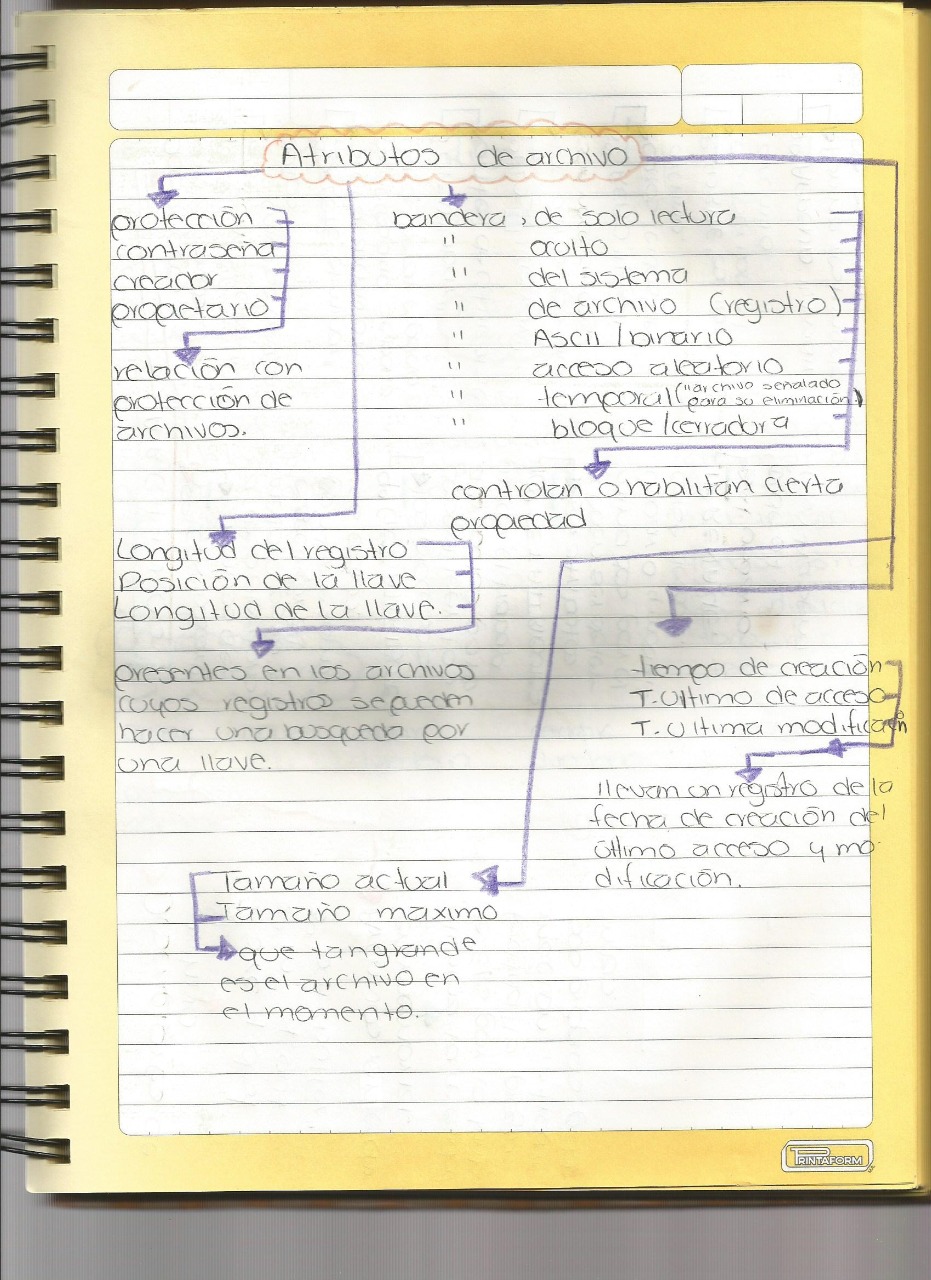 Atributos de archivo
protección
contraseña
creador
propietario
relación con
protección de
archivos.
bandera, de solo lectura
" oculto
" del sistema
" de archivo (registro)
" Ascii/binario
" acceso aleatorio
" temporal ("archivo señalado
para su eliminación.)
" bloque/cerradura
controlan o habilitan cierta
propiedad
Longitud del registro
Posición de la llave
Longitud de la llave.
presentes en los archivos
cuyos registros se pueden
hacer una busqueda por
una llave.
tiempo de creación
T. Ultimo de acceso
T. Ultima modificación
llevan un registro de la
fecha de creación del
último acceso y mo-
dificación.
Tamaño actual
Tamaño maximo
que tan grande
es el archivo en
el momento.
PRINTAFORM